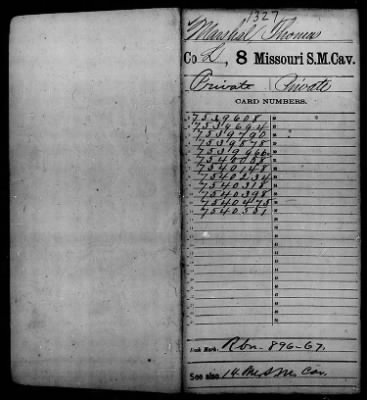 1327
Marshal Thomas
Co L, 8 Missouri S.M.Cav.
Private | Private
CARD NUMBERS.
7539608
7539694
7539790
7539878
7539966
7540058
7540148
7540234
7540318
7540398
7540475
7540551
Book Mark: R&n-896-67.
See also 14 Mo S M Cav.